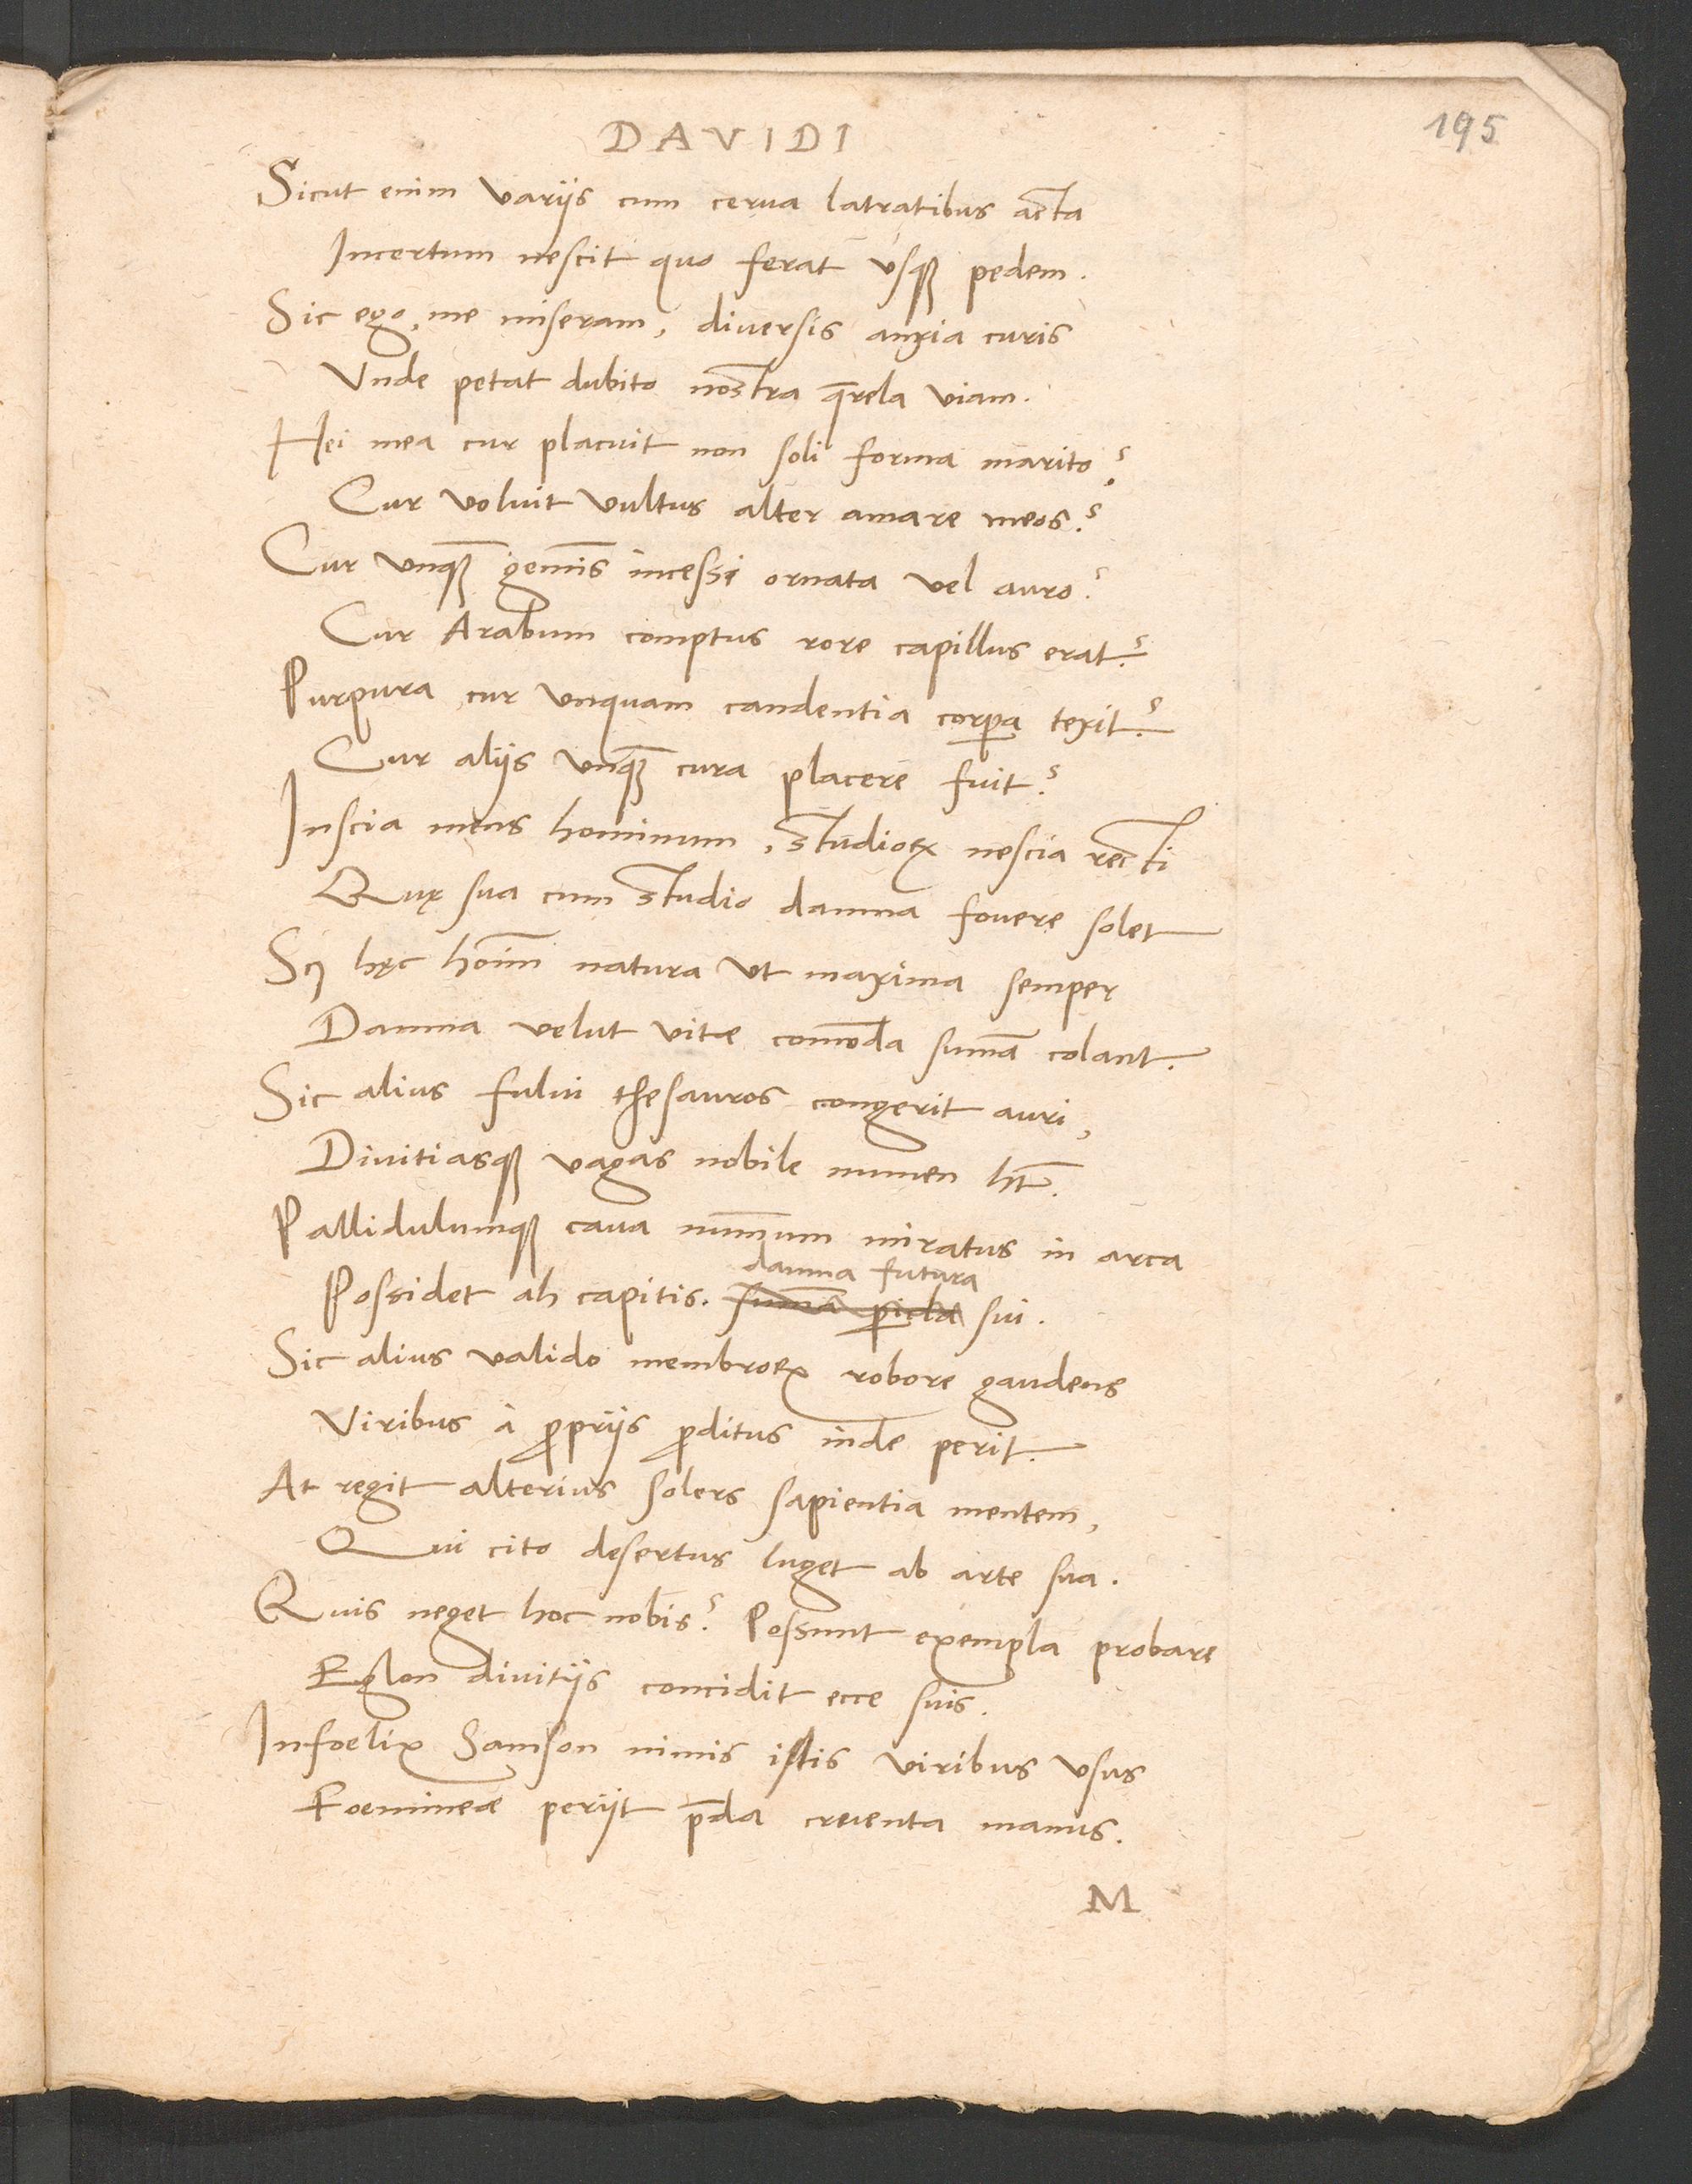 195
DAVIDI
Sicut enim varijs cum cerua latratibus acta
Incertum nescit quo ferat usqꝫ pedem.
Sic ego, me miseram, diuersis anxia curis
Vnde petat dubito nostra q̄rela viam.
Hei mea cur placuit non soli forma marito?
Cur voluit vultus alter amare meos?
Cur vnqꝫ̄ gem̄is incessi ornata vel auro?
Cur Arabum comptus rore capillus erat?
Purpura cur vnquam candentia corꝑa texit?
Cur alijs vnqꝫ̄ cura placere fuit?
Inscia mens hominum, studioꝝ nescia recti
Quę sua cum studio damna fouere solet
Sꝫ hęc hoīm natura vt maxima semper
Damna velut vitæ com̄oda sum̄a colant.
Sic alius fului thesauros congerit auri,
Diuitiasqꝫ vagas nobile numen ht̄.
Pallidulumqꝫ caua num̄um miratus in arca
damna futura
Possidet ah capitis. sum̄a ꝑicla sui.
Sic alius valido membroꝝ robore gaudens
Viribus à ꝓprijs ꝓditus inde perit.
At regit alterius solers sapientia mentem,
Qui cito desertus luget ab arte sua.
Quis neget hoc nobis? Possunt exempla probare
Eglon diuitijs concidit ecce suis.
Infoelix Samson nimis istis viribus vsus
Foemineæ perijt p̄da cruenta manus.
M